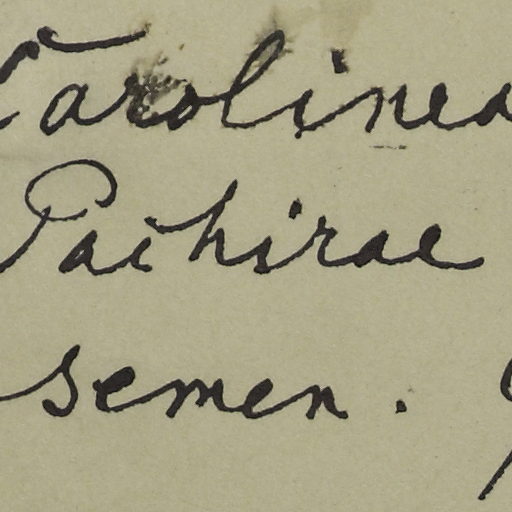 Carolinea
Pachirae
semen.